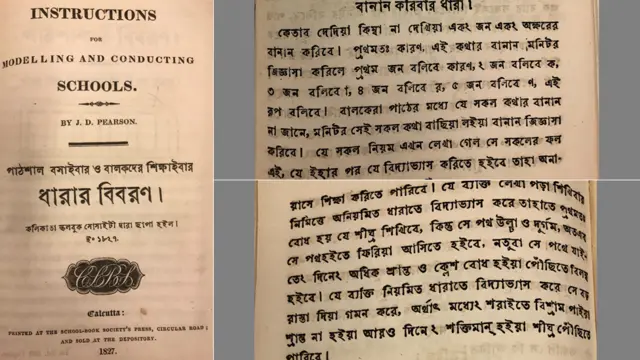 INSTRUCTIONS
FOR
MODELLING AND CONDUCTING
SCHOOLS.
BY J. D. PEARSON.
পাঠশাল বসাইবার ও বালকদের শিক্ষাইবার
ধারার বিবরণ।
কলিকাতা স্কুলবুক সোসাইটী দ্বারা ছাপা হইল।
ইং ১৮২৭.
Calcutta:
PRINTED AT THE SCHOOL-BOOK SOCIETY'S PRESS, CIRCULAR ROAD;
AND SOLD AT THE DEPOSITORY.
1827.
বানান করিবার ধারা।
কেতাব দেখিয়া কিম্বা না দেখিয়া এবং জন এবং অক্ষরের
বানান করিবে। প্রথমতঃ কারণ, এই কথার বানান মনিটর
জিজ্ঞাসা করিলে প্রথম জন বলিবে কারণ, ২ জন বলিবে ক,
৩ জন বলিবে া, ৪ জন বলিবে র, ৫ জন বলিবে ণ, এই
রূপ বলিবে। বালকেরা পাঠের মধ্যে যে সকল কথার বানান
না জানে, মনিটর সেই সকল কথা বাছিয়া লইয়া বানান জিজ্ঞাসা
করিবে। যে সকল নিয়ম এখন লেখা গেল সে সকলের ফল
এই, যে ইহার পর যে বিদ্যাভ্যাস করিতে হইবে তাহা অনা-
য়াসে শিক্ষা করিতে পারিবে। যে ব্যক্তি লেখা পড়া শিখিবার
নিমিতে অনিয়মিত ধারাতে বিদ্যাভ্যাস করে তাহাতে প্রথমতঃ
বোধ হয় যে শীঘ্র শিখিবে, কিন্তু সে পথ উল্টা ও দুর্গম, অতএব
সে পথহইতে ফিরিয়া আসিতে হইবে, নতুবা সে পথে যাই-
তে২ দিনে২ অধিক শ্রান্ত ও ক্লেশ বোধ হইয়া পৌঁছিতে বিলম্ব
হইবে। যে ব্যক্তি নিয়মিত ধারাতে বিদ্যাভ্যাস করে সে বড়
রাস্তা দিয়া গমন করে, অর্থাৎ মধ্যে২ শরাইতে বিশ্রাম পাইয়া
শ্রান্ত না হইয়া আরও দিনে২ শক্তিমান্ হইয়া শীঘ্র পৌঁছিতে
পারিবে।